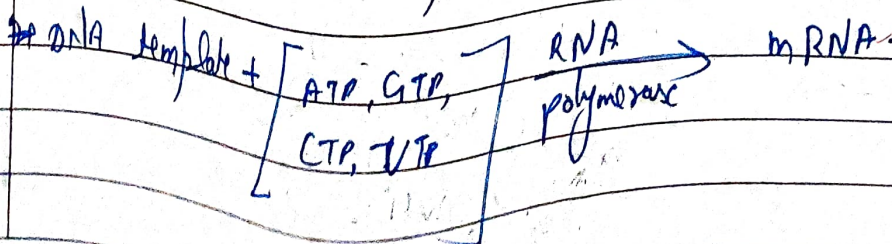 DNA template + [ATP, GTP, CTP, UTP] RNA polymerase → mRNA.